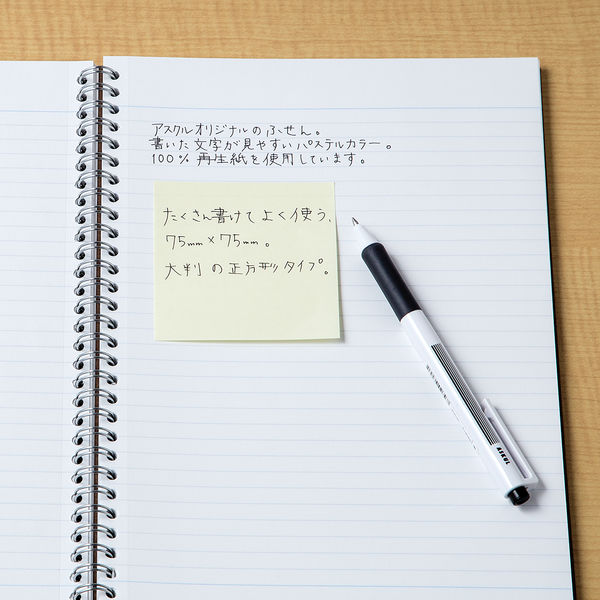 アスクルオリジナルのふせん。
書いた文字が見やすいパステルカラー。
100% 再生紙を使用しています。
たくさん書けてよく使う、
75mm×75mm。
大判の正方形タイプ。
ASKUL